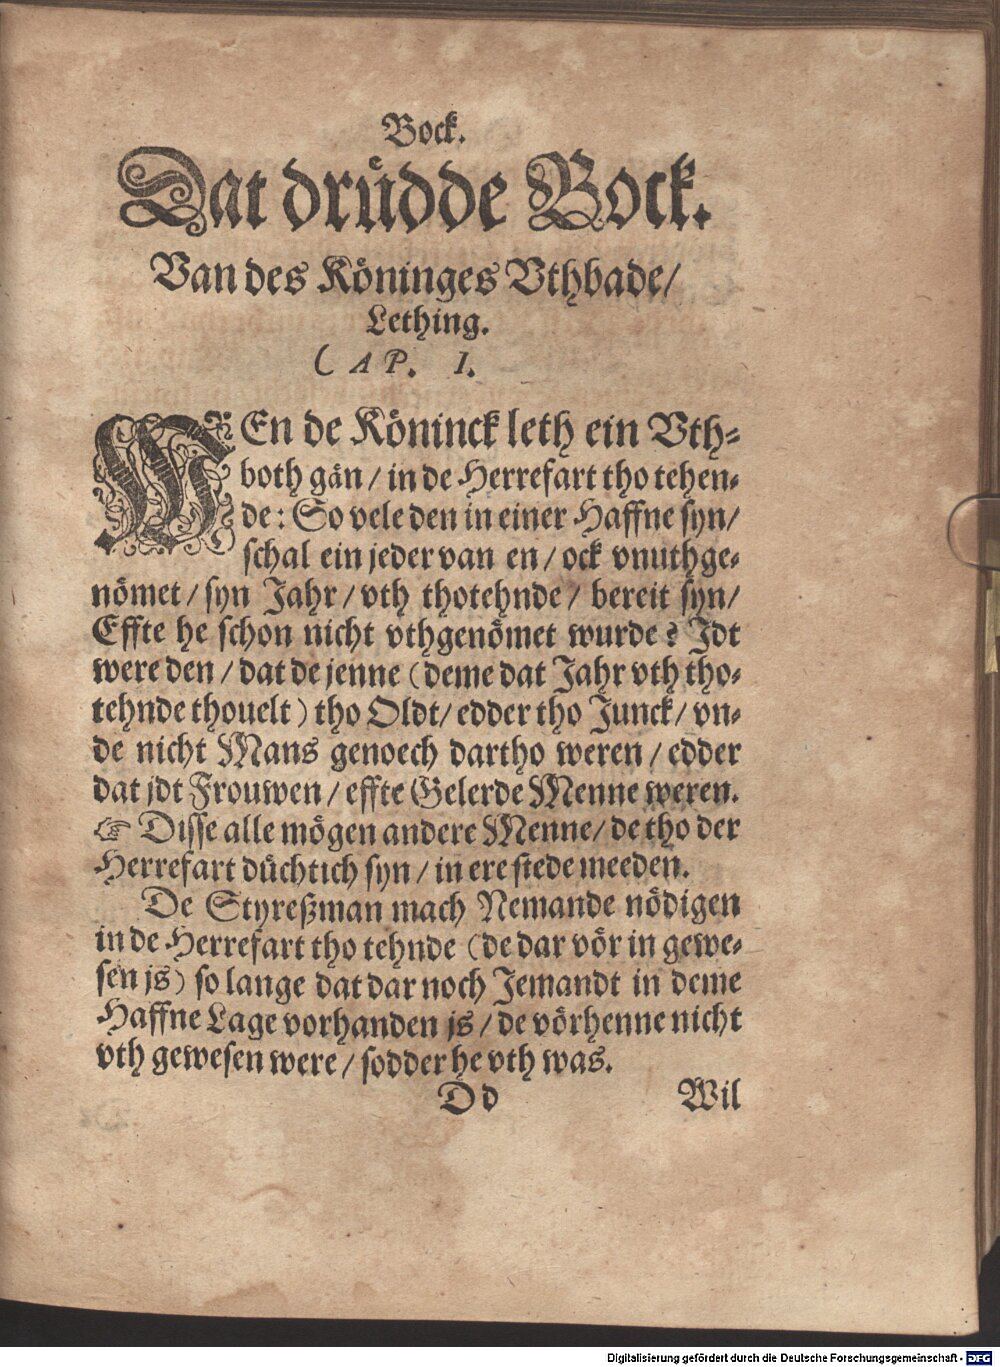 Bock.
Dat drüdde Bock.
Van des Köninges Vthbade/
Lething.
CAP. I.
WEn de Köninck leth ein Vth-
both gån / in de Herrefart tho tehen-
de: So vele den in einer Haffne syn/
schal ein jeder van en / ock vnuthge-
nömet / syn Jahr / vth thotehnde / bereit syn/
Effte he schon nicht vthgenömet wurde? Idt
were den / dat de jenne (deme dat Jahr vth tho-
tehnde thouelt) tho Oldt/ edder tho Junck/ vn-
de nicht Mans genoech dartho weren / edder
dat jdt Frouwen / effte Gelerde Menne weren.
☞ Disse alle mögen andere Menne/ de tho der
Herrefart düchtich syn / in ere stede meeden.
De Styreßman mach Nemande nödigen
in de Herrefart tho tehnde (de dar vör in gewe-
sen js) so lange dat dar noch Jemandt in deme
Haffne Lage vorhanden js / de vörhenne nicht
vth gewesen were / sodder he vth was.
Dd Wil
Digitalisierung gefördert durch die Deutsche Forschungsgemeinschaft - DFG